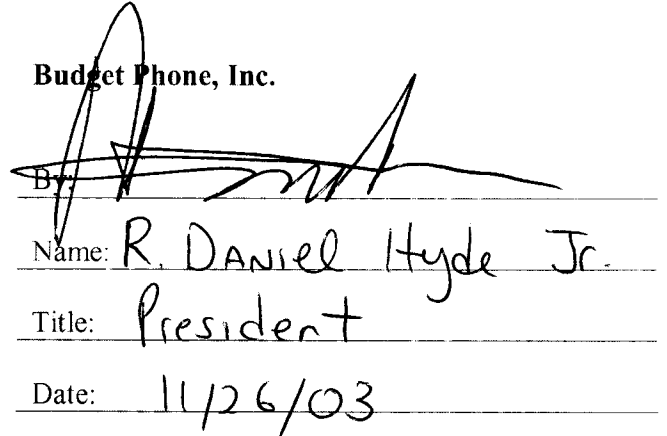 Budget Phone, Inc.
By:
Name: R. Daniel Hyde Jr.
Title: President
Date: 11/26/03